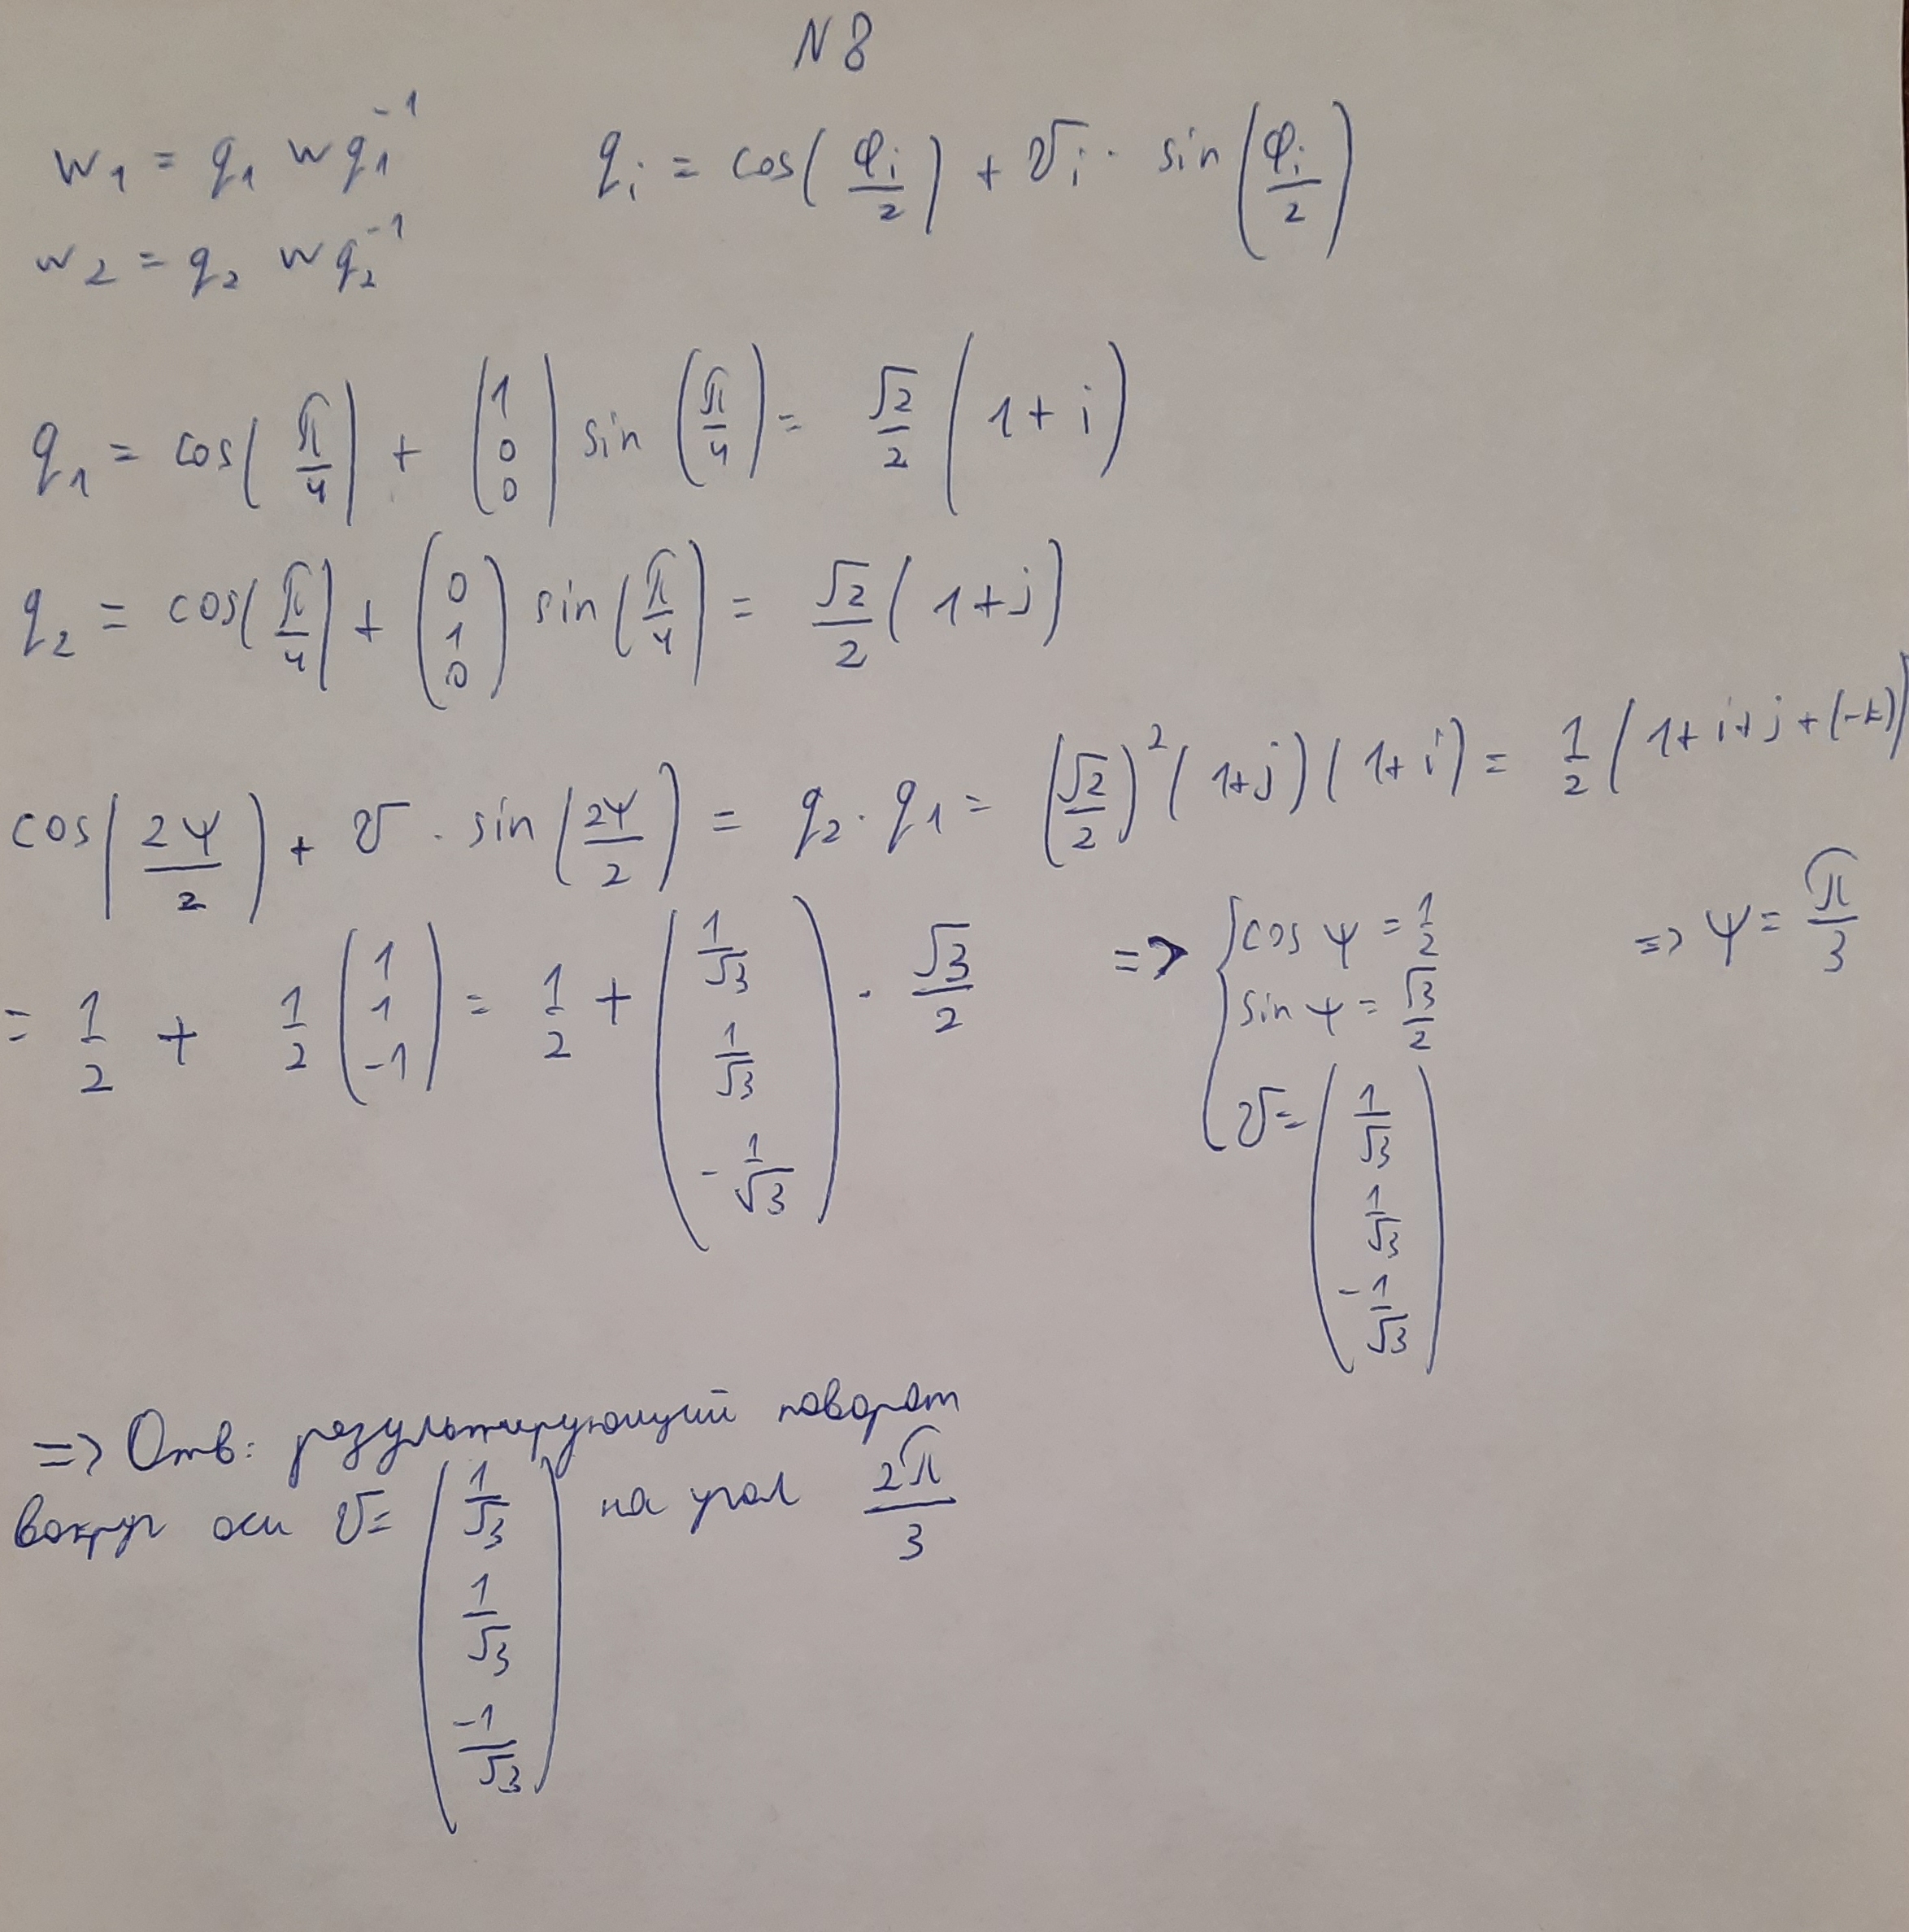 N 8
w₁ = q₁ w q₁⁻¹    qᵢ = cos(φᵢ/2) + vᵢ · sin(φᵢ/2)
w₂ = q₂ w q₂⁻¹
q₁ = cos(π/4) + (1 0 0) sin(π/4) = √2/2 (1 + i)
q₂ = cos(π/4) + (0 1 0) sin(π/4) = √2/2 (1 + j)
cos(2ψ/2) + v · sin(2ψ/2) = q₂ · q₁ = (√2/2)² (1+j)(1+i) = 1/2 (1+i+j+(-k))
= 1/2 + 1/2 (1 1 -1) = 1/2 + (1/√3 1/√3 -1/√3) · √3/2 => { cos ψ = 1/2 sin ψ = √3/2 v = (1/√3 1/√3 -1/√3) => ψ = π/3
=> Отв: результирующий поворот
вокруг оси v = (1/√3 1/√3 -1/√3) на угол 2π/3